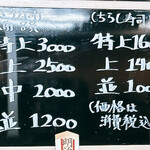 特上3000
上2500
中2000
並1200
(ちらし寿司
特上16
上14
並10
(価格は
消費税込